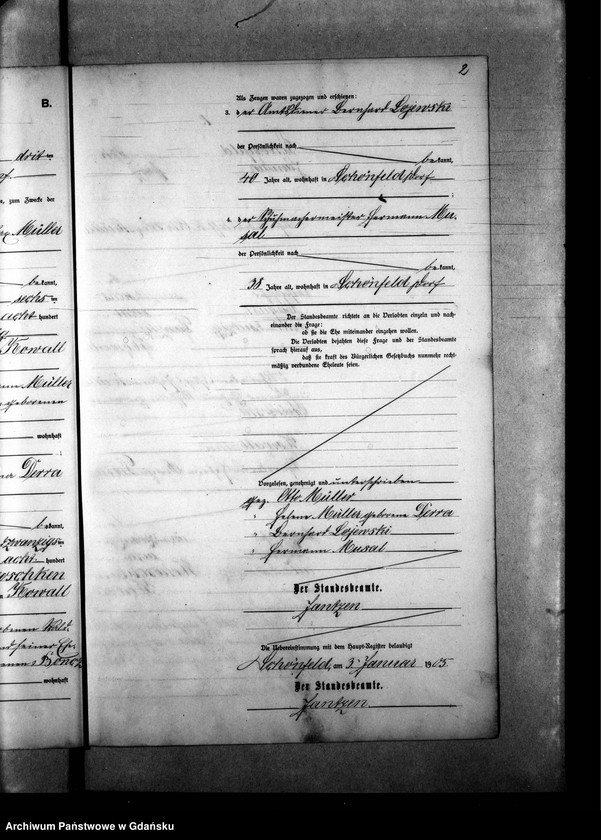 B.
drit
zum Zwecke der
Müller
kannt,
sechs
acht hundert
Kowall
Müller
geborenen
wohnhaft
Derra
kannt,
acht hundert
Kowall
wohnhaft
2
Als Zeugen waren zugezogen und erschienen:
3. der Amtsdiener Bernhard Lojewski
der Persönlichkeit nach
bekannt,
40 Jahre alt, wohnhaft in Schönfeld Dorf
;
4. der Schuhmachermeister Hermann Mu-
sal
der Persönlichkeit nach
bekannt,
38 Jahre alt, wohnhaft in Schönfeld Dorf
Der Standesbeamte richtete an die Verlobten einzeln und nach-
einander die Frage:
ob sie die Ehe miteinander eingehen wollen.
Die Verlobten bejahten diese Frage und der Standesbeamte
sprach hierauf aus,
daß sie kraft des Bürgerlichen Gesetzbuchs nunmehr recht-
mäßig verbundene Eheleute seien.
Vorgelesen, genehmigt und unterschrieben
gez. Otto Müller
" Helene Müller geborene Derra
" Bernhart Lojewski
" Hermann Musal
Der Standesbeamte.
Jantzen
Die Uebereinstimmung mit dem Haupt-Register beglaubigt
Schönfeld, am 3. Januar 1905
Der Standesbeamte.
Jantzen
Archiwum Państwowe w Gdańsku